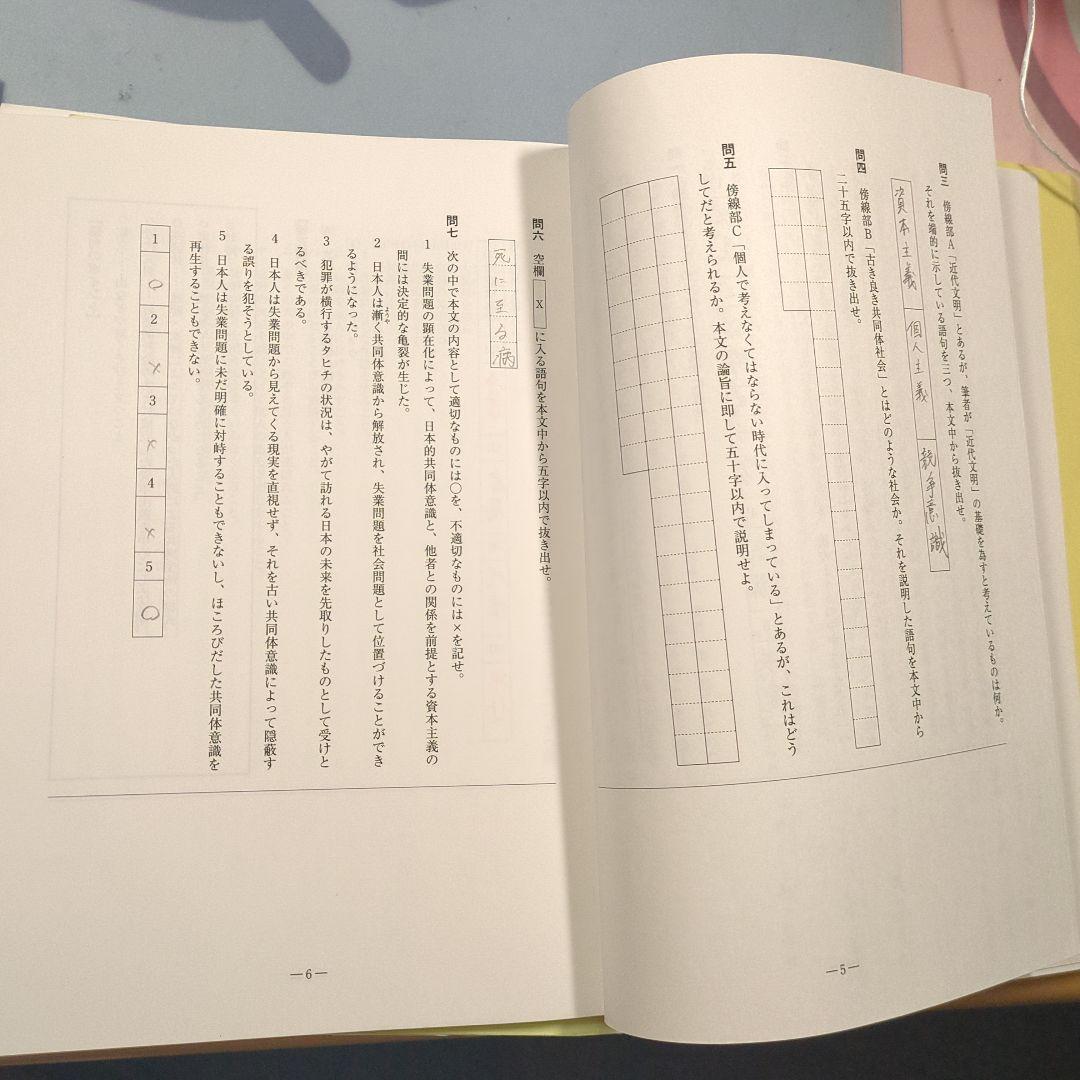 問三 傍線部A「近代文明」とあるが、筆者が「近代文明」の基礎を為すと考えているものは何か。
それを端的に示している語句を三つ、本文中から抜き出せ。
資本主義
個人主義
競争意識
問四 傍線部B「古き良き共同体社会」とはどのような社会か。それを説明した語句を本文中から
二十五字以内で抜き出せ。
問五 傍線部C「個人で考えなくてはならない時代に入ってしまっている」とあるが、これはどう
してだと考えられるか。本文の論旨に即して五十字以内で説明せよ。
―5―
問六 空欄 X に入る語句を本文中から五字以内で抜き出せ。
死に至る病
問七 次の中で本文の内容として適切なものには〇を、不適切なものには×を記せ。
1 失業問題の顕在化によって、日本的共同体意識と、他者との関係を前提とする資本主義の
間には決定的な亀裂が生じた。
2 日本人は漸く共同体意識から解放され、失業問題を社会問題として位置づけることができ
ようや
るようになった。
3 犯罪が横行するタヒチの状況は、やがて訪れる日本の未来を先取りしたものとして受けと
るべきである。
4 日本人は失業問題から見えてくる現実を直視せず、それを古い共同体意識によって隠蔽す
る誤りを犯そうとしている。
5 日本人は失業問題に未だ明確に対峙することもできないし、ほころびだした共同体意識を
再生することもできない。
1 〇 2 × 3 × 4 × 5 〇
―6―